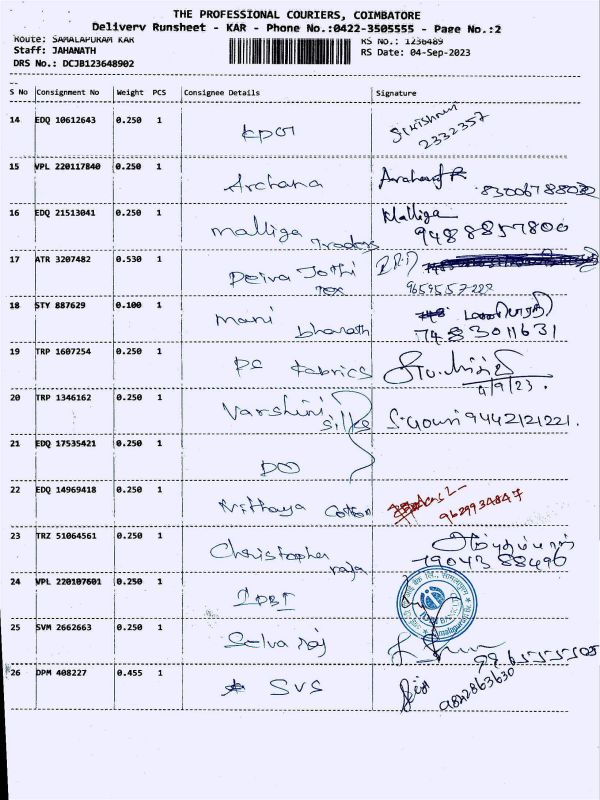 THE PROFESSIONAL COURIERS, COIMBATORE
Delivery Runsheet - KAR - Phone No.:0422-3505555 - Page No.:2
Route: SAMALAPURAM KAR RS No.: 1236489
Staff: JAHANATH RS Date: 04-Sep-2023
DRS No.: DCJB123648902
S No Consignment No Weight PCS Consignee Details Signature
14 EDQ 10612643 0.250 1 KPOT Srikishnni
2332357
15 VPL 220117840 0.250 1 Archana
16 EDQ 21513041 0.250 1 Malliga Traders Malliga
9488857800
17 ATR 3207482 0.530 1 Deiva Jothi Tex
9659557222
18 STY 887629 0.100 1 Mani bharath
7483011631
19 TRP 1607254 0.250 1 PS Fabrics
4/9/23.
20 TRP 1346162 0.250 1 Varshini Silks S.Gowri 9442121221.
21 EDQ 17535421 0.250 1 DO
22 EDQ 14969418 0.250 1 Nithaya Cotton
9629934847
23 TRZ 51064561 0.250 1 Christopher raja
7904388490
24 VPL 220107601 0.250 1 IDBI
25 SVM 2662663 0.250 1 Selva raj
26 DPM 408227 0.455 1 SVS
9842863630